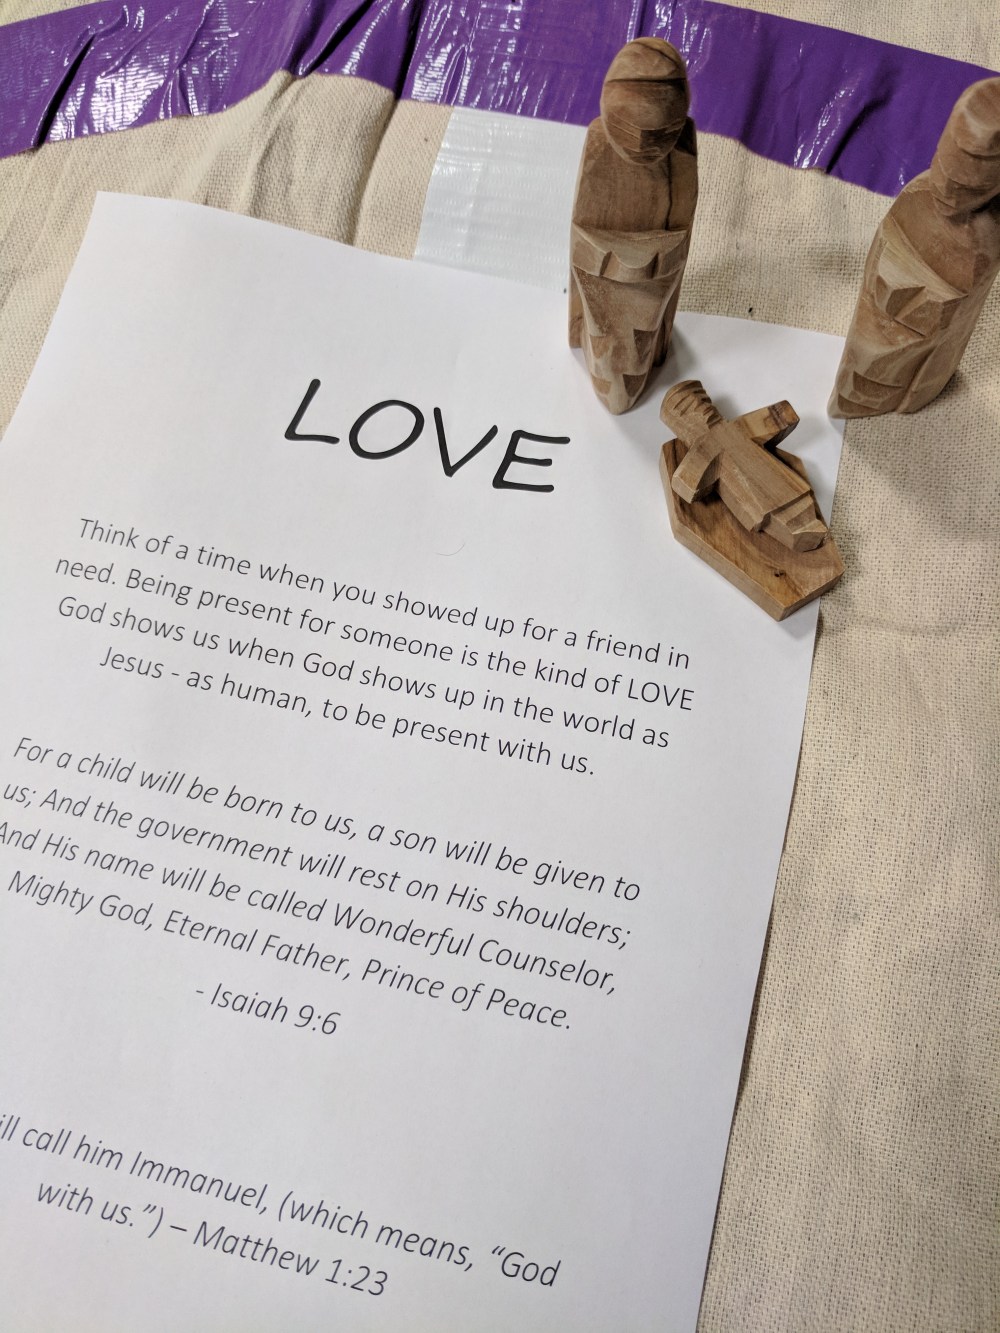 LOVE
Think of a time when you showed up for a friend in
need. Being present for someone is the kind of LOVE
God shows us when God shows up in the world as
Jesus - as human, to be present with us.
For a child will be born to us, a son will be given to
us; And the government will rest on His shoulders;
And His name will be called Wonderful Counselor,
Mighty God, Eternal Father, Prince of Peace.
- Isaiah 9:6
call him Immanuel, (which means, “God
with us.”) – Matthew 1:23